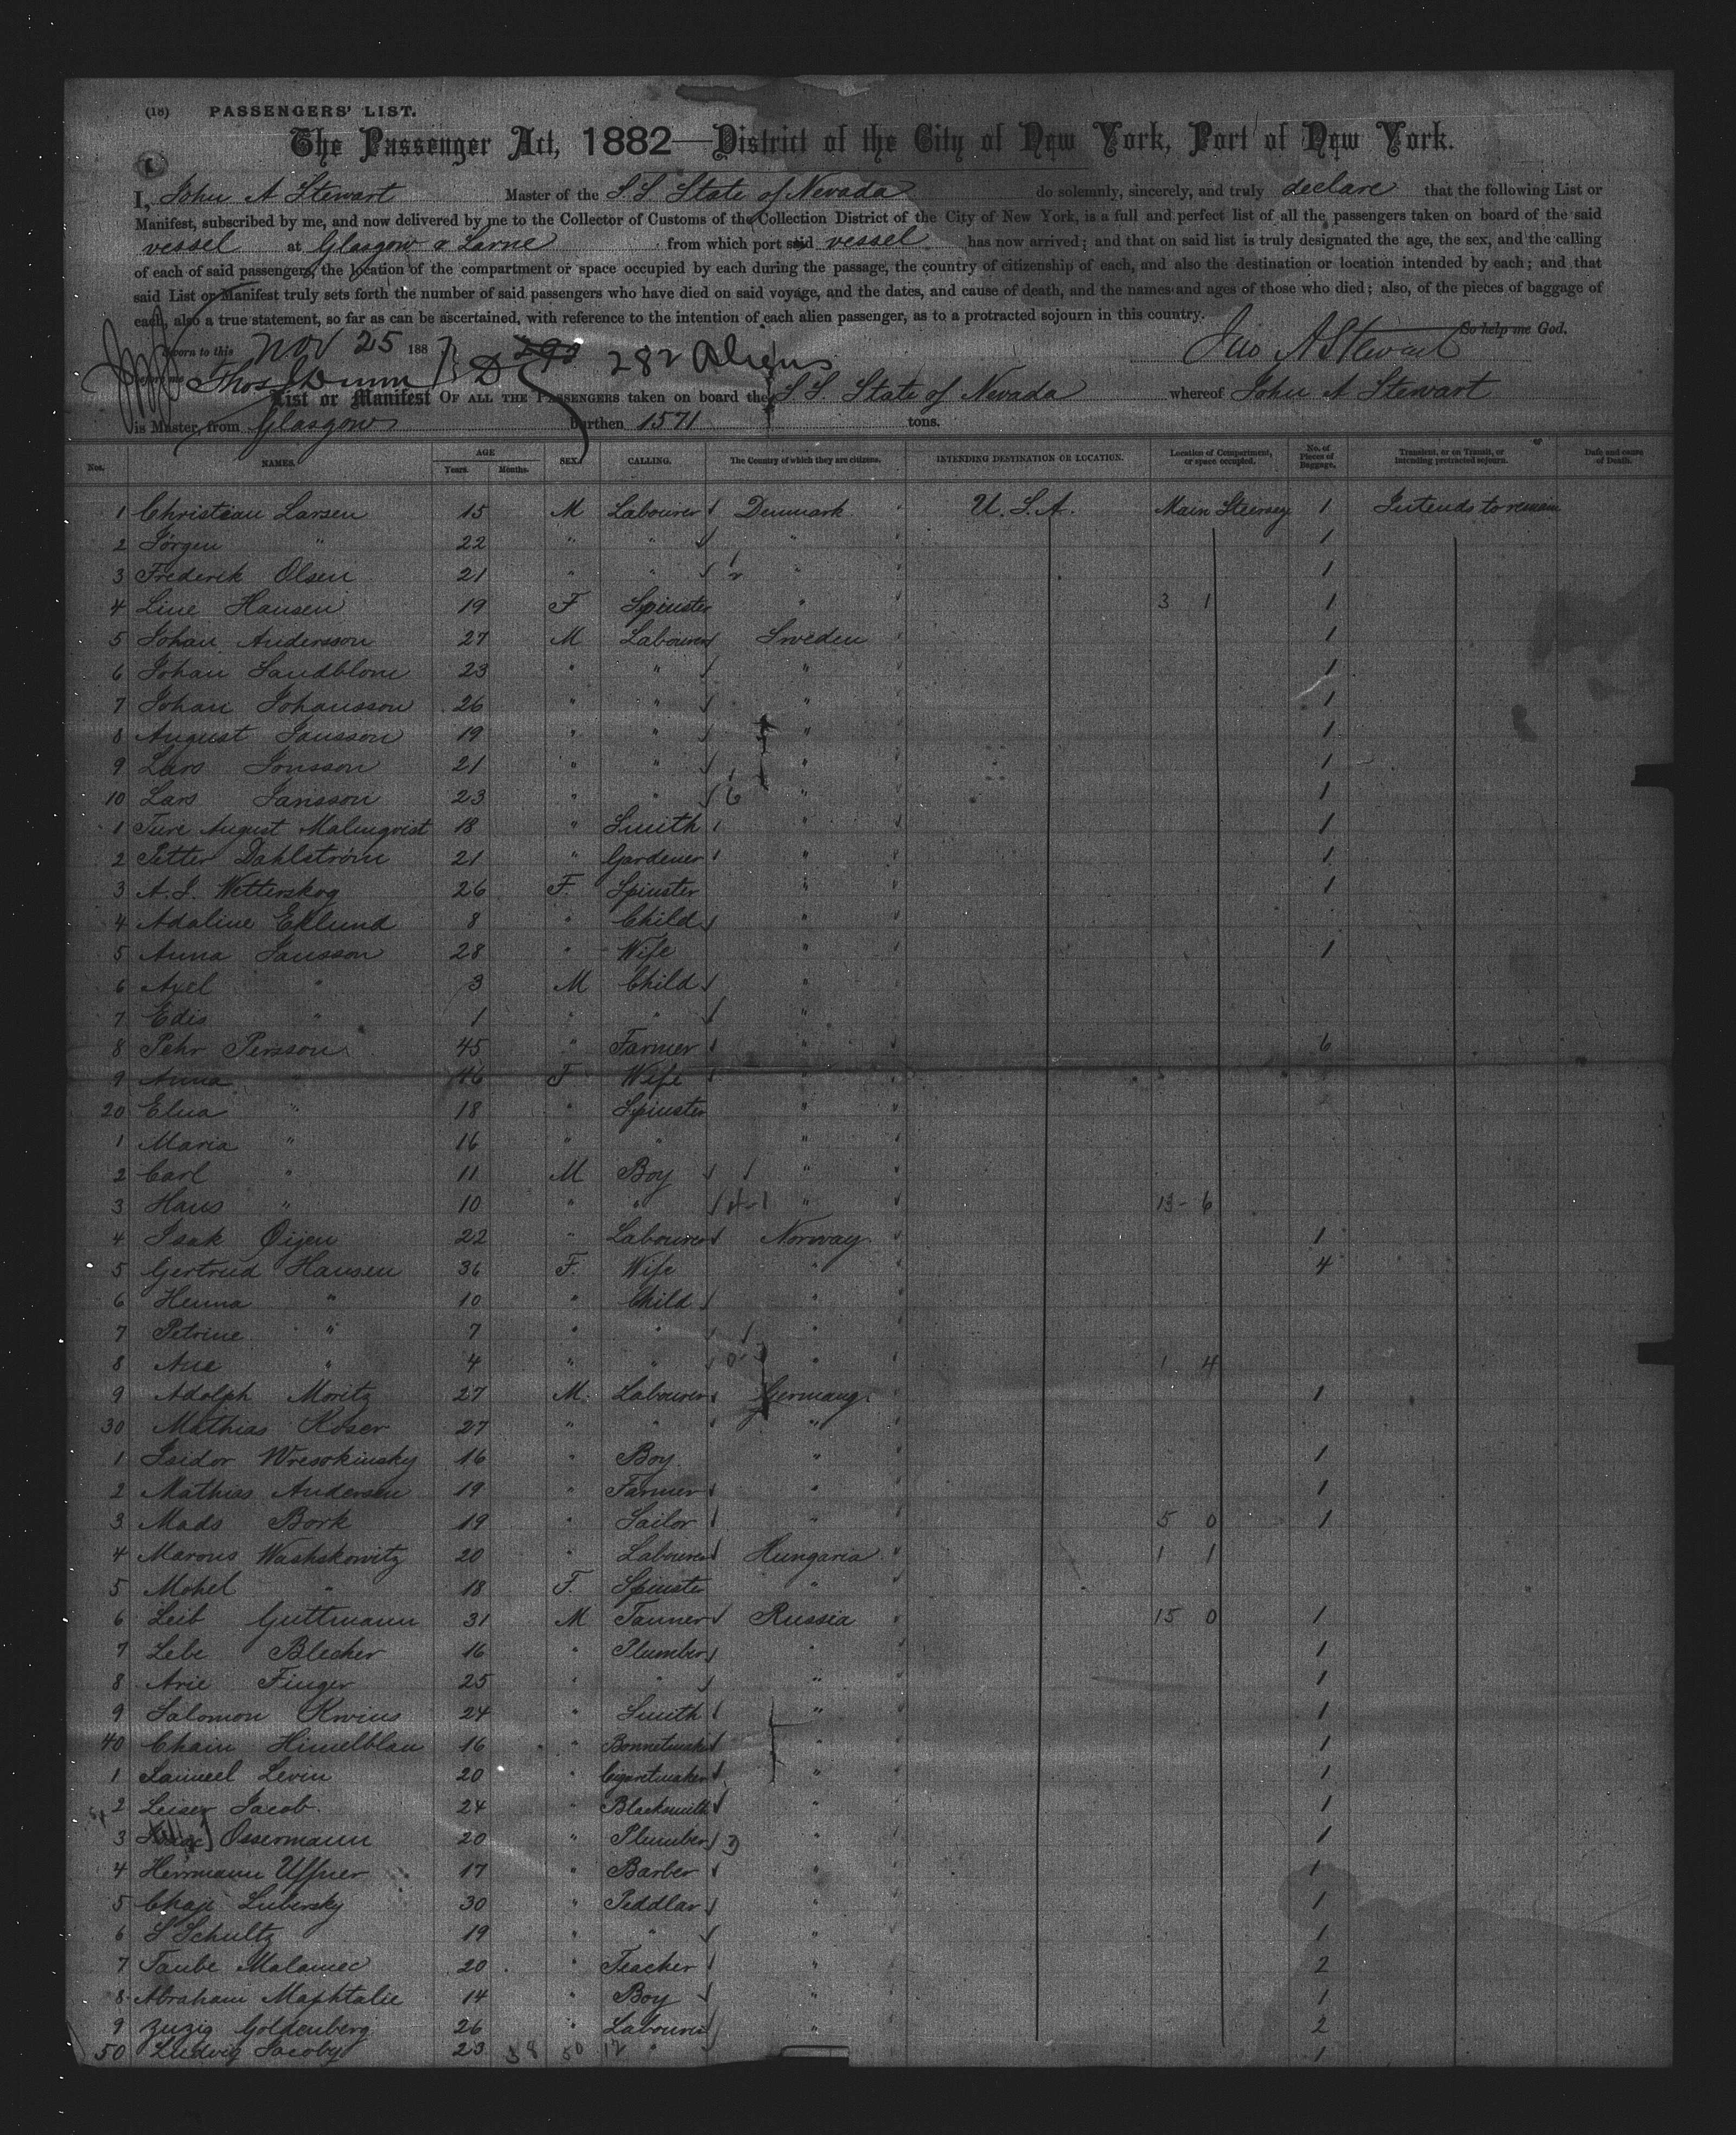 (18) PASSENGERS' LIST.
The Passenger Act, 1882—District of the City of New York, Port of New York.
I, John A Stewart Master of the S.S. State of Nevada do solemnly, sincerely, and truly declare that the following List or
Manifest, subscribed by me, and now delivered by me to the Collector of Customs of the Collection District of the City of New York, is a full and perfect list of all the passengers taken on board of the said
vessel at Glasgow & Larne from which port said vessel has now arrived; and that on said list is truly designated the age, the sex, and the calling
of each of said passengers, the location of the compartment or space occupied by each during the passage, the country of citizenship of each, and also the destination or location intended by each; and that
said List or Manifest truly sets forth the number of said passengers who have died on said voyage, and the dates, and cause of death, and the names and ages of those who died; also, of the pieces of baggage of
each, also a true statement, so far as can be ascertained, with reference to the intention of each alien passenger, as to a protracted sojourn in this country. So help me God.
Sworn to this Nov 25 1887 292 282 Aliens Jno A Stewart
before me Thos Dunn
List or Manifest OF ALL THE PASSENGERS taken on board the S.S. State of Nevada whereof John A Stewart
is Master, from Glasgow burthen 1571 tons.
Nos. NAMES. AGE Years. Months. SEX. CALLING. The Country of which they are citizens. INTENDING DESTINATION OR LOCATION. Location of Compartment, or space occupied. No. of Pieces of Baggage. Transient, or on Transit, or intending protracted sojourn. Date and cause of Death.
1 Christian Larsen 15 M Labourer Denmark U.S.A. Main Steerage 1 Intends to remain
2 Jörgen " 22 " " " 1
3 Frederik Olsen 21 " " " 1
4 Line Hansen 19 F Spinster " 3 1 1
5 Johan Andersson 27 M Labourer Sweden 1
6 Johan Sandblom 23 " " " 1
7 Johan Johansson 26 " " " 1
8 August Jansson 19 " " " 1
9 Lars Jonsson 21 " " " 1
10 Lars Jansson 23 " " 6 " 1
1 Ture August Malmqvist 18 " Smith " 1
2 Petter Dahlström 21 " Gardener " 1
3 A. S. Wetterskog 26 F. Spinster " 1
4 Adaline Eklund 8 " Child "
5 Anna Jansson 28 " Wife " 1
6 Axel " 3 M Child "
7 Edis " 1 " " "
8 Pehr Persson 45 " Farmer " 6
9 Anna " 46 F Wife "
20 Elna " 18 " Spinster "
1 Maria " 16 " " "
2 Carl " 11 M Boy "
3 Hans " 10 " " 4-1 " 13-6
4 Isak Öijen 22 " Labourer Norway 1
5 Gertrud Hansen 36 F. Wife " 4
6 Henna " 10 " Child "
7 Petrine " 7 " " "
8 Ane " 4 " " " 1 4
9 Adolph Moritz 27 M. Labourer Germany 1
30 Mathias Koser 27 " " "
1 Isidor Wresokinsky 16 " Boy " 1
2 Mathias Andersen 19 " Farmer " 1
3 Mads Bork 19 " Sailor " 5 0 1
4 Marous Washskowitz 20 " Labourer Hungaria 1 1
5 Mohel " 18 F. Spinster "
6 Leib Guttmann 31 M Tanner Russia 15 0 1
7 Lebe Blecher 16 " Plumber " 1
8 Arie Finger 25 " " " 1
9 Salomon Krvins 24 " Smith " 1
40 Chain Himelblau 16 " Bonnetmaker " 1
1 Samuel Levin 20 " Cigaretmaker " 1
2 Leiser Jacob 24 " Blacksmith " 1
3 Ossermann 20 " Plumber " 1
4 Herrmann Uffner 17 " Barber " 1
5 Chaje Lubersky 30 " Peddlar " 1
6 S Schultz 19 " " " 1
7 Taube Malamec 20 " Teacher " 2
8 Abraham Maphtalie 14 " Boy " 1
9 Zuzig Goldenberg 26 " Labourer " 2
50 Ludvig Jacoby 23 38 50 12 " 1